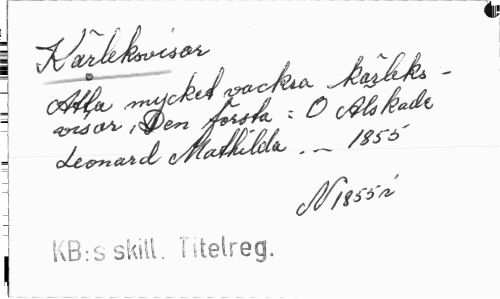 Kärleksvisor
Åtta mycket vackra kärleks-
visor, Den första: O Älskade
Leonard Mathilda. — 1855
N 1855
KB:s skill. Titelreg.